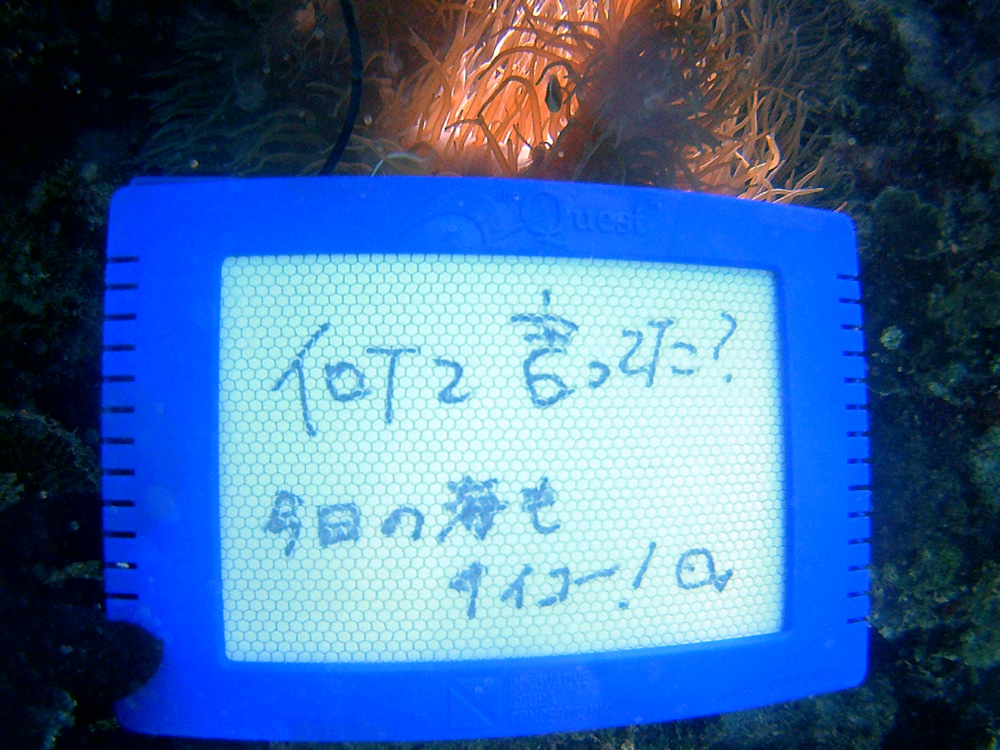 Quest
何て言ってた?
今日の海も
サイコー!